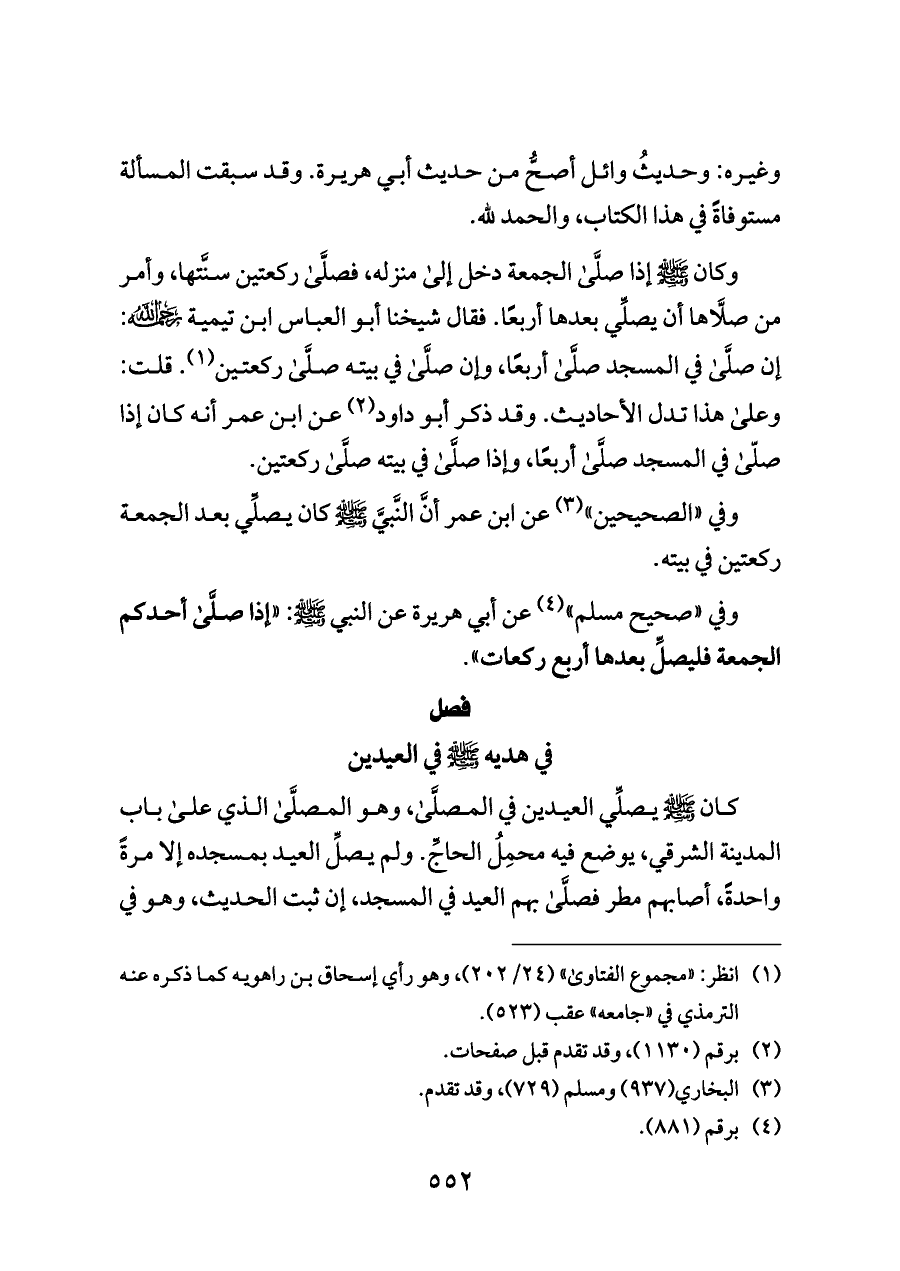 وغيره: وحديثُ وائل أصحُّ من حديث أبي هريرة. وقد سبقت المسألة
مستوفاةً في هذا الكتاب، والحمد لله.
وكان ﷺ إذا صلَّىٰ الجمعة دخل إلىٰ منزله، فصلَّىٰ ركعتين سنَّتها، وأمر
من صلَّاها أن يصلِّي بعدها أربعًا. فقال شيخنا أبو العباس ابن تيمية رحمه الله:
إن صلَّىٰ في المسجد صلَّىٰ أربعًا، وإن صلَّىٰ في بيته صلَّىٰ ركعتين(١). قلت:
وعلىٰ هذا تدل الأحاديث. وقد ذكر أبو داود(٢) عن ابن عمر أنه كان إذا
صلّىٰ في المسجد صلَّىٰ أربعًا، وإذا صلَّىٰ في بيته صلَّىٰ ركعتين.
وفي «الصحيحين»(٣) عن ابن عمر أنَّ النَّبيَّ ﷺ كان يصلِّي بعد الجمعة
ركعتين في بيته.
وفي «صحيح مسلم»(٤) عن أبي هريرة عن النبي ﷺ: «إذا صلَّىٰ أحدكم
الجمعة فليصلِّ بعدها أربع ركعات».
فصل
في هديه ﷺ في العيدين
كان ﷺ يصلِّي العيدين في المصلَّىٰ، وهو المصلَّىٰ الذي علىٰ باب
المدينة الشرقي، يوضع فيه محمِلُ الحاجِّ. ولم يصلِّ العيد بمسجده إلا مرةً
واحدةً، أصابهم مطر فصلَّىٰ بهم العيد في المسجد، إن ثبت الحديث، وهو في
(١) انظر: «مجموع الفتاوىٰ» (٢٤/ ٢٠٢)، وهو رأي إسحاق بن راهويه كما ذكره عنه
الترمذي في «جامعه» عقب (٥٢٣).
(٢) برقم (١١٣٠)، وقد تقدم قبل صفحات.
(٣) البخاري(٩٣٧) ومسلم (٧٢٩)، وقد تقدم.
(٤) برقم (٨٨١).
٥٥٢